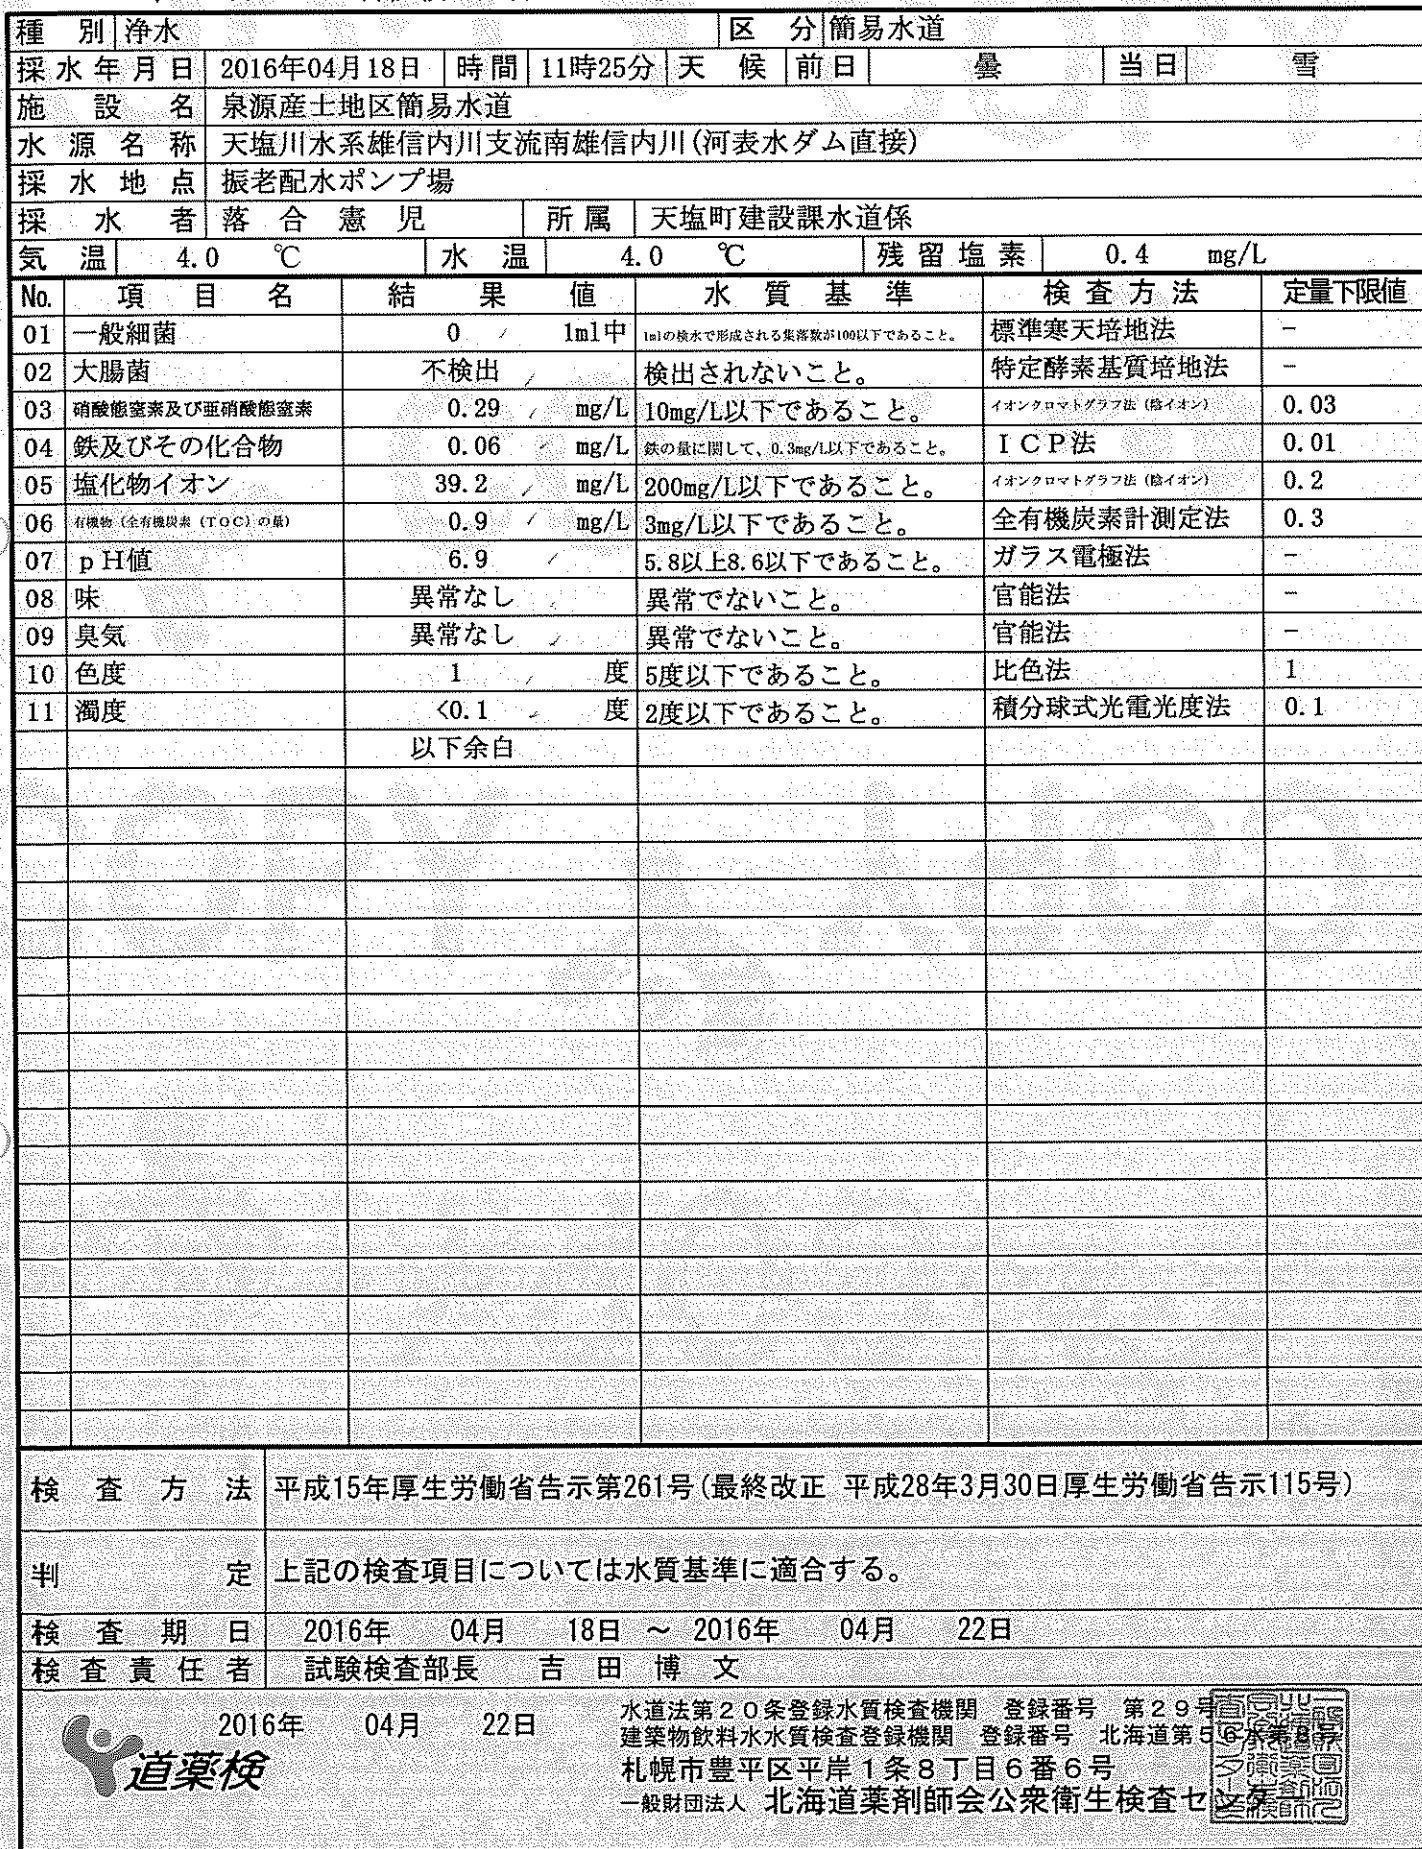 種 別 浄水 区 分 簡易水道
採水年月日 2016年04月18日 時間 11時25分 天 候 前日 曇 当日 雪
施 設 名 泉源産士地区簡易水道
水 源 名 称 天塩川水系雄信内川支流南雄信内川(河表水ダム直接)
採 水 地 点 振老配水ポンプ場
採 水 者 落 合 憲 児 所属 天塩町建設課水道係
気 温 4.0 ℃ 水 温 4.0 ℃ 残留塩素 0.4 mg/L
No. 項 目 名 結 果 値 水 質 基 準 検査方法 定量下限値
01 一般細菌 0 1ml中 1mlの検水で形成される集落数が100以下であること。 標準寒天培地法 -
02 大腸菌 不検出 検出されないこと。 特定酵素基質培地法 -
03 硝酸態窒素及び亜硝酸態窒素 0.29 mg/L 10mg/L以下であること。 イオンクロマトグラフ法(陰イオン) 0.03
04 鉄及びその化合物 0.06 mg/L 鉄の量に関して、0.3mg/L以下であること。 ICP法 0.01
05 塩化物イオン 39.2 mg/L 200mg/L以下であること。 イオンクロマトグラフ法(陰イオン) 0.2
06 有機物(全有機炭素(TOC)の量) 0.9 mg/L 3mg/L以下であること。 全有機炭素計測定法 0.3
07 pH値 6.9 5.8以上8.6以下であること。 ガラス電極法 -
08 味 異常なし 異常でないこと。 官能法 -
09 臭気 異常なし 異常でないこと。 官能法 -
10 色度 1 度 5度以下であること。 比色法 1
11 濁度 <0.1 度 2度以下であること。 積分球式光電光度法 0.1
以下余白
検 査 方 法 平成15年厚生労働省告示第261号(最終改正 平成28年3月30日厚生労働省告示115号)
判 定 上記の検査項目については水質基準に適合する。
検 査 期 日 2016年 04月 18日 ～ 2016年 04月 22日
検査責任者 試験検査部長 吉 田 博 文
2016年 04月 22日
道薬検
水道法第20条登録水質検査機関 登録番号 第29号
建築物飲料水水質検査登録機関 登録番号 北海道第56水第8号
札幌市豊平区平岸1条8丁目6番6号
一般財団法人 北海道薬剤師会公衆衛生検査センター